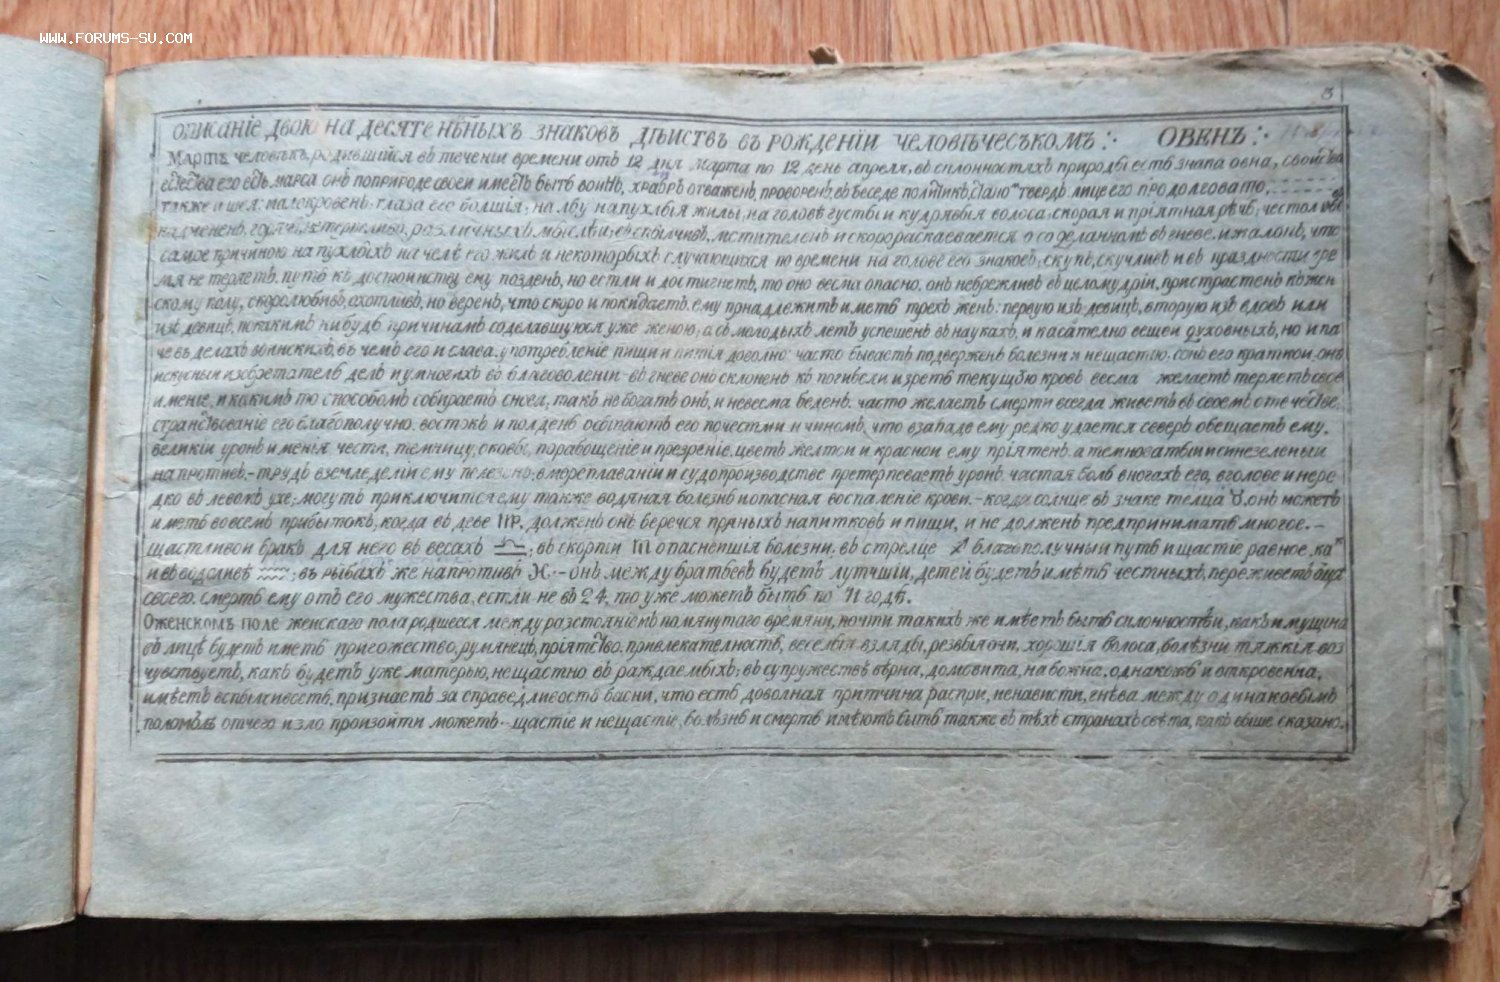 WWW.FORUMS-SU.COM
3
ОПИСАНІЕ ДВОЮ НА ДЕСЯТЕ НБНЫХЪ ЗНАКОВЪ ДѢИСТВЪ ВЪ РОЖДЕНІИ ЧЕЛОВѢЧЕСЪКОМЪ: ОВЕНЪ:
Мартъ человѣкъ родившийся въ течении времени отъ 12 дня марта по 12 день апреля, въ склонностяхъ природы есть знака овна, свойства
естества его есть марса онъ поприроде своеи имеетъ быть воинъ, храбръ отваженъ, проворенъ, въ беседе политикъ, твердъ лице его продолговато,
также и шея: малокровенъ, глаза его болшія, на лбу напухлыя жилы, на головѣ густыи кудрявыя волоса, скорая и пріятная рѣчь, честолюб
надмененъ, различныхъ мыслеи, вспылчивъ, мстителенъ и скорораскаевается о соделанномъ въ гневе. и жалокъ, что
самое причиною на пухлыхъ на челѣ его жилъ и некоторыхъ случающихся по времени на голове его знаковъ, скупъ, скучливъ и въ праздности вре
мя не теряетъ. путь къ достоинству ему позденъ, но естли и достигнетъ, то оно весма опасно. онъ небрежливъ въ целомудріи, пристрастенъ къ жен
скому полу, скоролюбивъ, охотливъ, но веренъ, что скоро и покидаетъ. ему принадлежитъ иметь трехъ женъ: первую изъ девицъ, вторую изъ вдовъ или
изъ девицъ, по какимъ нибудь причинамъ соделавшуюся уже женою; а съ молодыхъ летъ успешенъ въ наукахъ, и касателно вещеи духовныхъ, но и па
че въ делахъ воинскихъ, въ чемъ его и слава. употребленіе пищи и питія доволно: часто бываетъ подверженъ болезни и нещастію. сонъ его краткои, онъ
искусныи изобретатель делъ и у многихъ во благоволеніи - въ гневе онъ склоненъ къ погибели и зреть текущую кровь весма желаетъ теряетъ свое
имение, и какимъ то способомъ собираетъ снова, такъ не богатъ онъ, и невесма беденъ. часто желаетъ смерти всегда живетъ въ своемъ отечестве.
странствованіе его благополучно. востокъ и полдень осыпаютъ его почестми и чиномъ, что взападе ему редко удается северъ обещаетъ ему.
великіи уронъ имения чести, темницу, оковы, порабощеніе и презреніе. цветъ желтои и краснои ему пріятенъ. а темноватыи и синезеленыи
напротивъ. - трудъ вземледеліи ему полезенъ, в мореплаваніи и судопроизводстве претерпеваетъ уронъ. частая боль в ногахъ его, в голове и нере
дко въ левомъ ухе; могутъ приключится ему также водяная болезнь и опасная воспаленіе крови. - когда солнце въ знаке телца ♉. онъ можетъ
иметь во всемъ прибытокъ, когда въ деве ♍. долженъ онъ беречся пряныхъ напитковъ и пищи, и не долженъ предпринимать многое. -
щастливои бракъ для него въ весахъ ♎; въ скорпіи ♏ опаснеишія болезни. въ стрелце ♐ благополучный путь и щастіе равное ка
и въ водолиѣ ♒; въ рыбахъ же напротивъ ♓. - онъ между братьевъ будетъ лутчшіи, детей будетъ имѣть честныхъ, переживетъ отца
своего. смерть ему отъ его мужества, естли не въ 24, то уже можетъ быть по 71 годѣ.
О женскомъ поле женскаго пола родшееся между разстояніемъ помянутаго времяни, почти такихъ же имѣетъ быть склонностеи, какъ и мущина
въ лицѣ будетъ иметь пригожество, румянецъ, пріятство. привлекателность, веселыя взляды, резвыя очи, хорошія волоса, болѣзни тяжкія воз
чувствуетъ, какъ будетъ уже матерью, нещастно въ раждаемыхъ; въ супружествѣ вѣрна, домовита, набожна. однакожъ и откровенна,
имѣетъ вспылчивость. признаетъ за справедливость басни, что есть доволная притчина распри, ненависти, гнѣва между одинаковымъ
поломъ отчего и зло произоити можетъ - щастіе и нещастіе, болѣзнь и смерть имѣютъ быть также въ тѣхъ странахъ свѣта, какъ выше сказано.